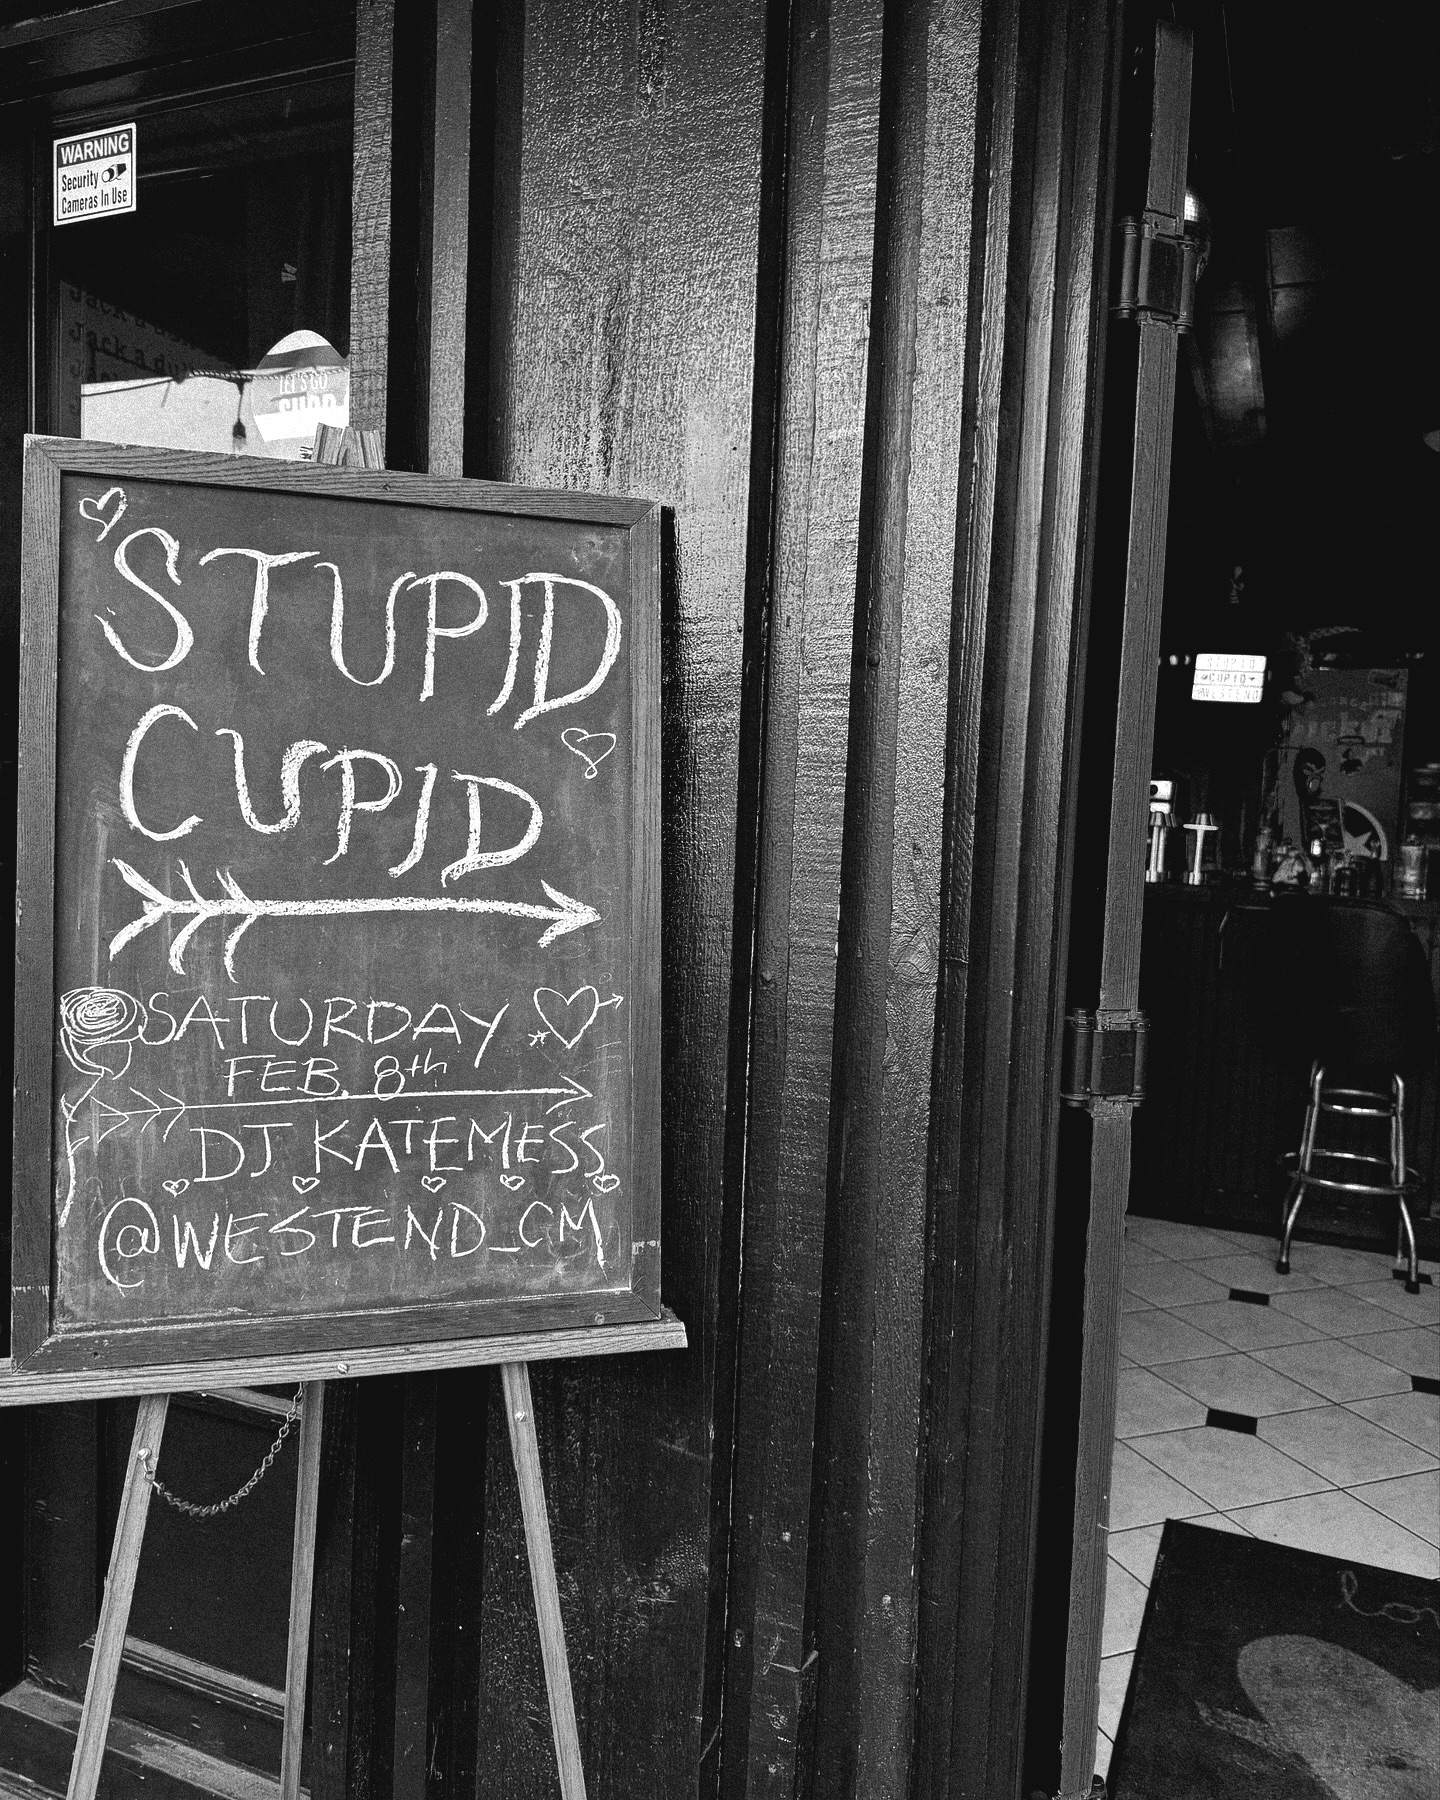 WARNING
Security
Cameras In Use
Jack a du
LET'S GO
STUPID
CUPID
SATURDAY
FEB. 8th
DJ KATEMESS
@WESTEND_CM
STUPID
CUPID
WESTEND